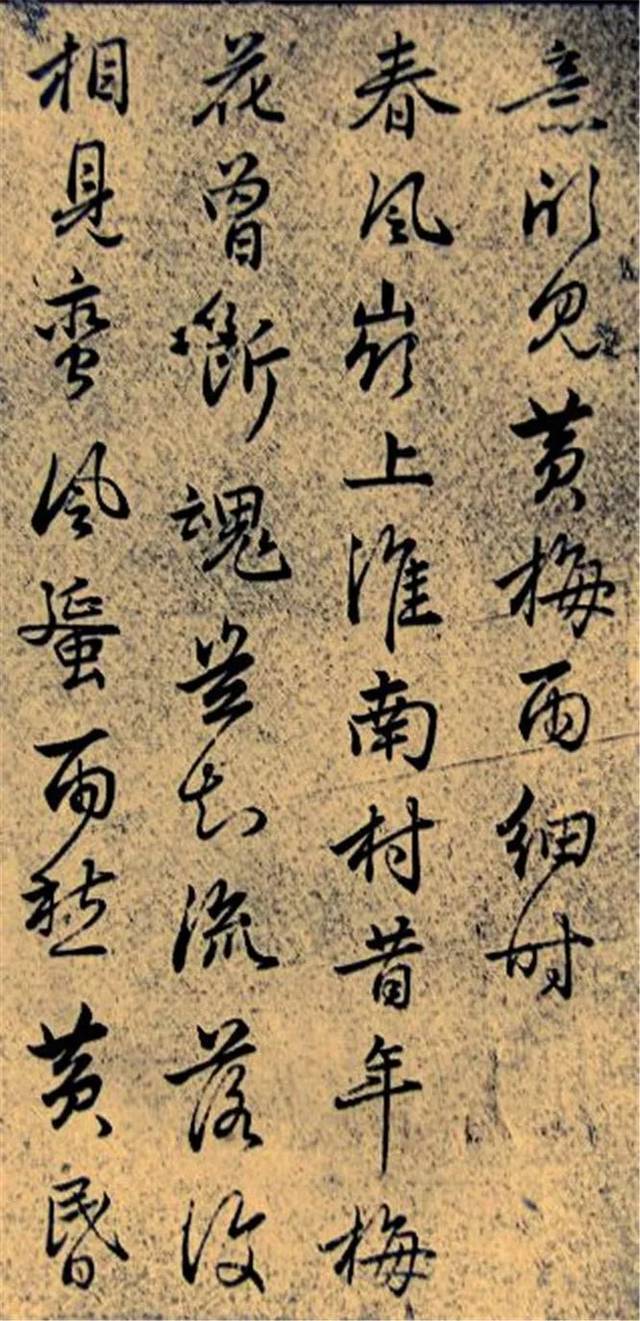 意怕見黃梅雨細時
春風嶺上淮南村昔年梅
花曾斷魂豈知流落復
相見蠻風蜑雨愁黃昏